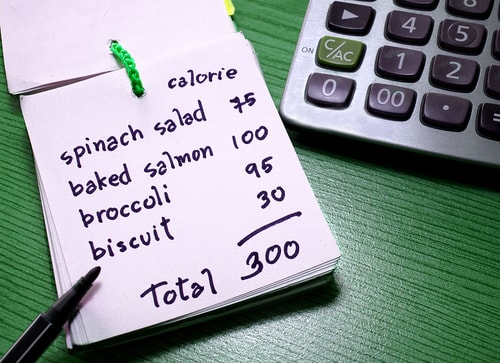 calorie
spinach salad 75
baked salmon 100
broccoli 95
biscuit 30
Total 300
8
4 5
ON C/AC 1 2
0 00 . =